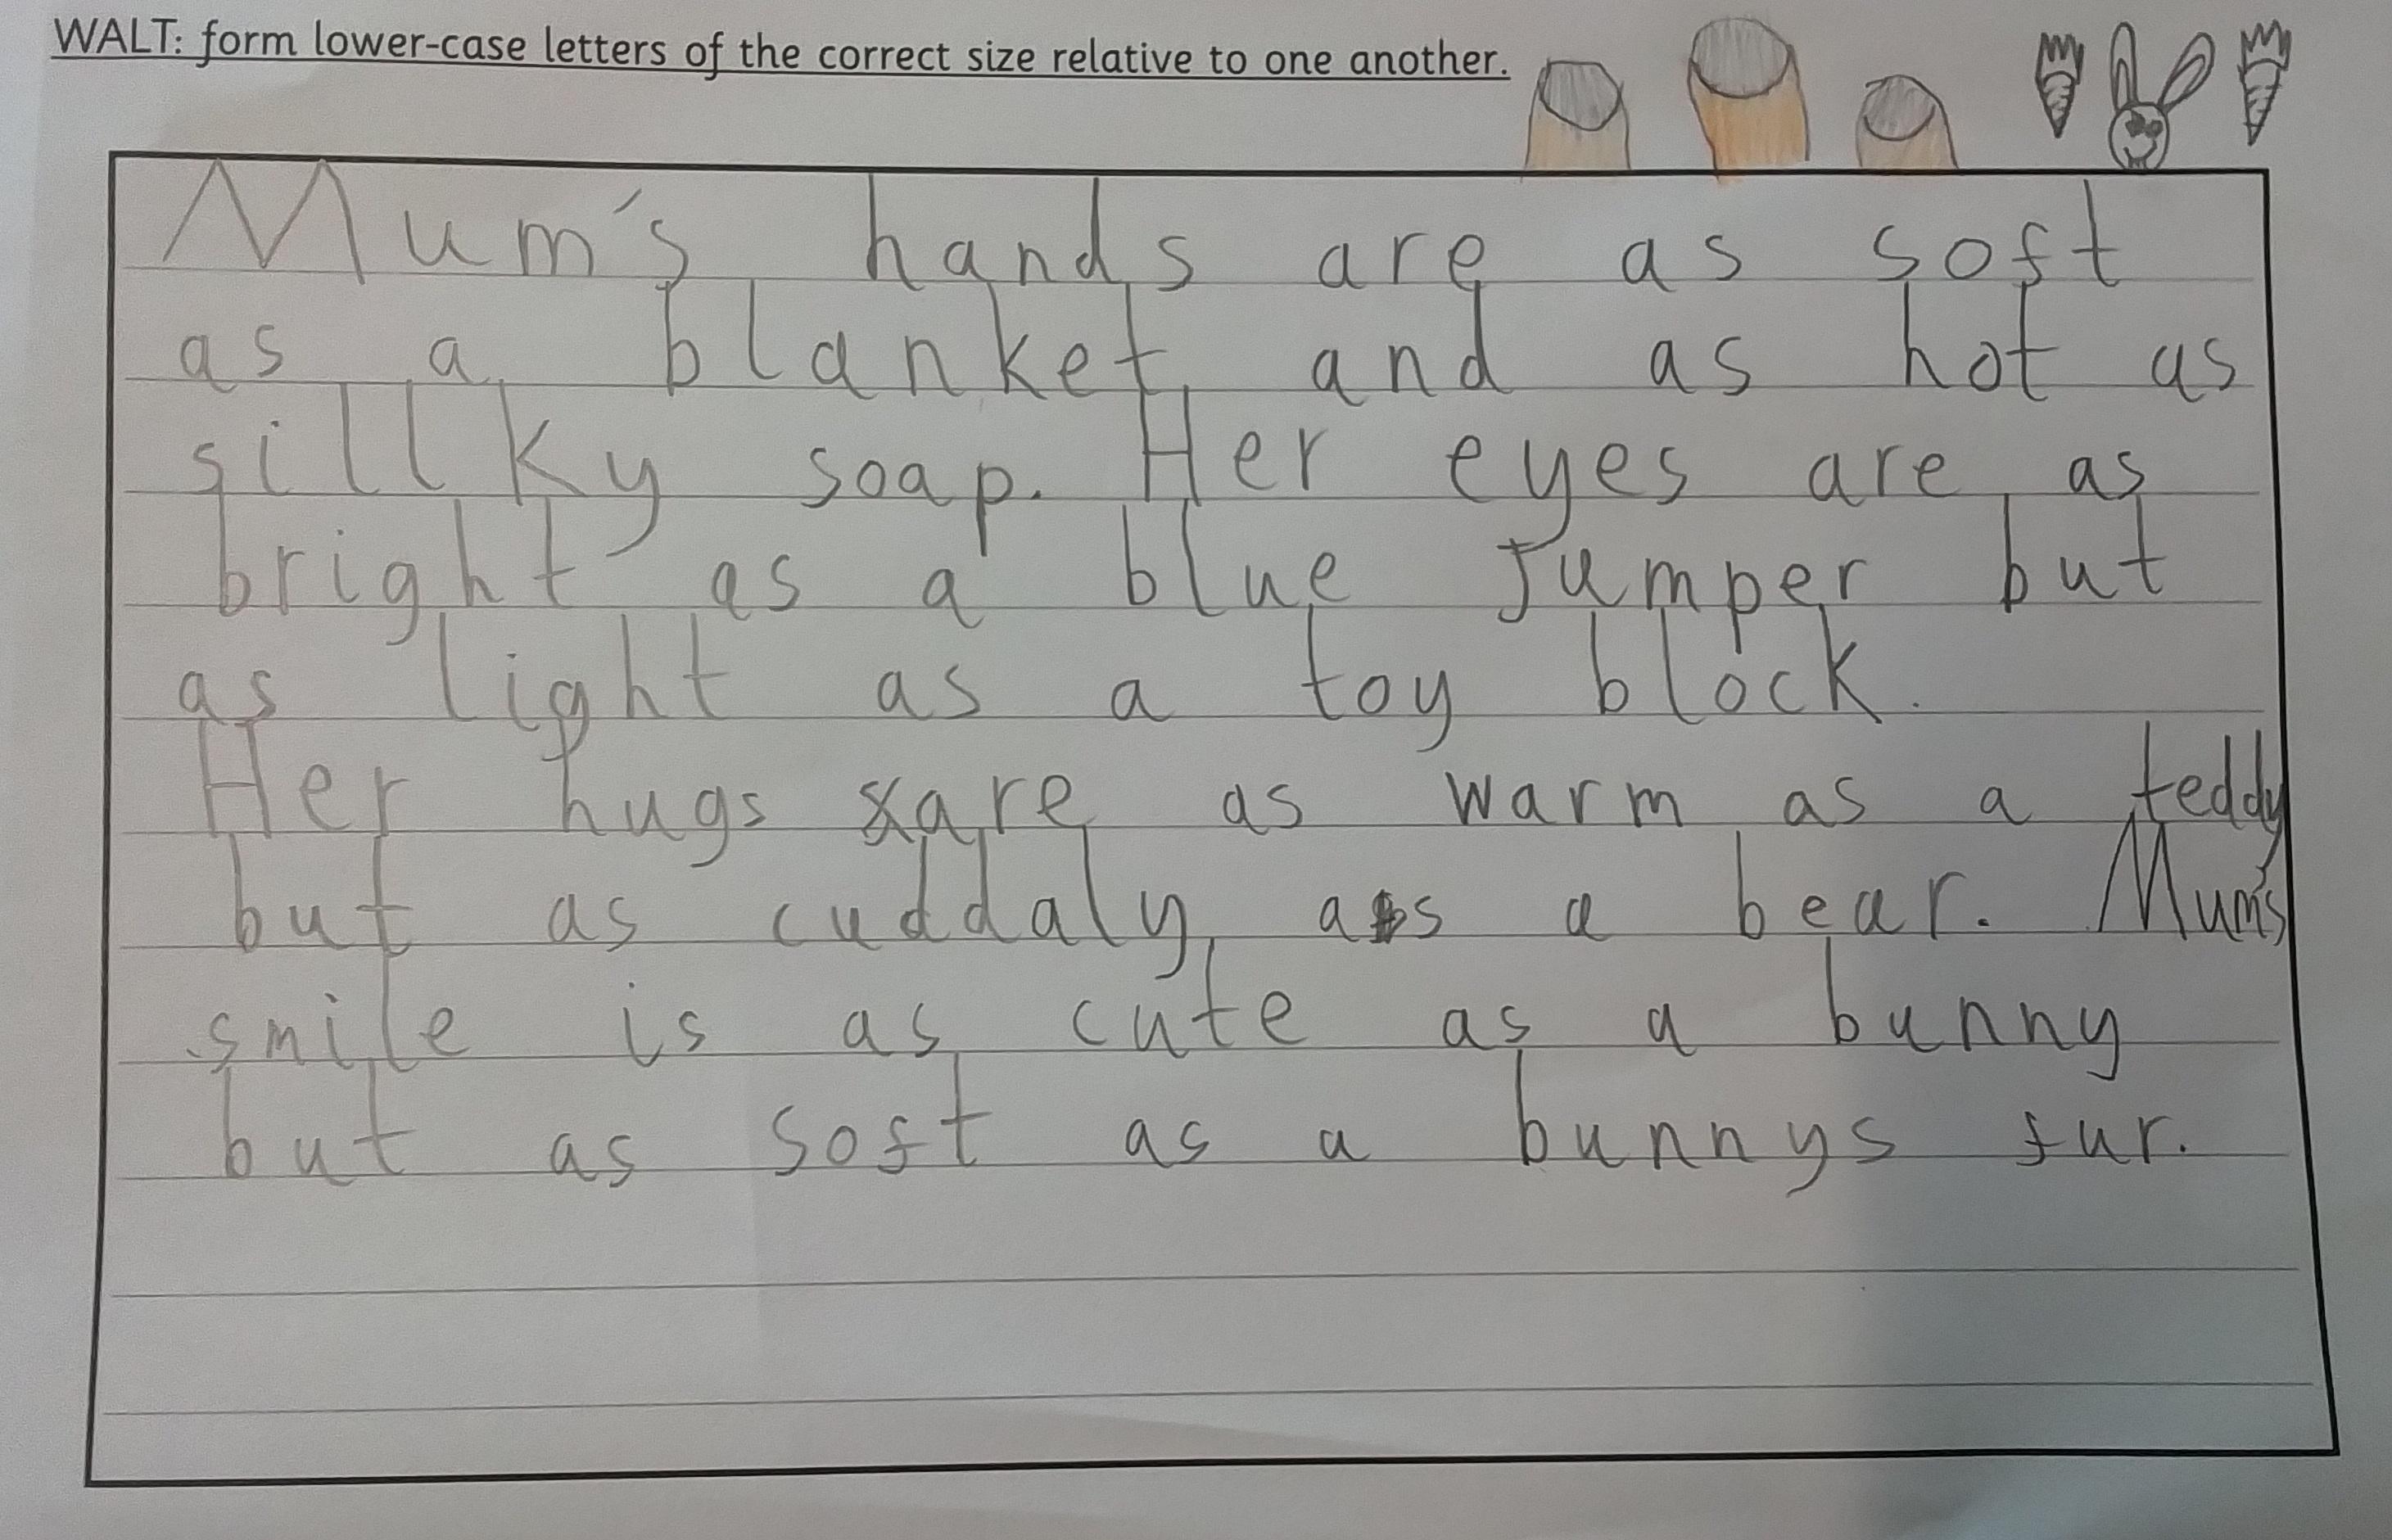 WALT: form lower-case letters of the correct size relative to one another.
Mum's hands are as soft
as a blanket and as hot as
sillky soap. Her eyes are as
bright as a blue Jumper but
as light as a toy block.
Her hugs are as warm as a teddy
but as cuddaly as a bear. Mum's
smile is as cute as a bunny
but as soft as a bunnys fur.